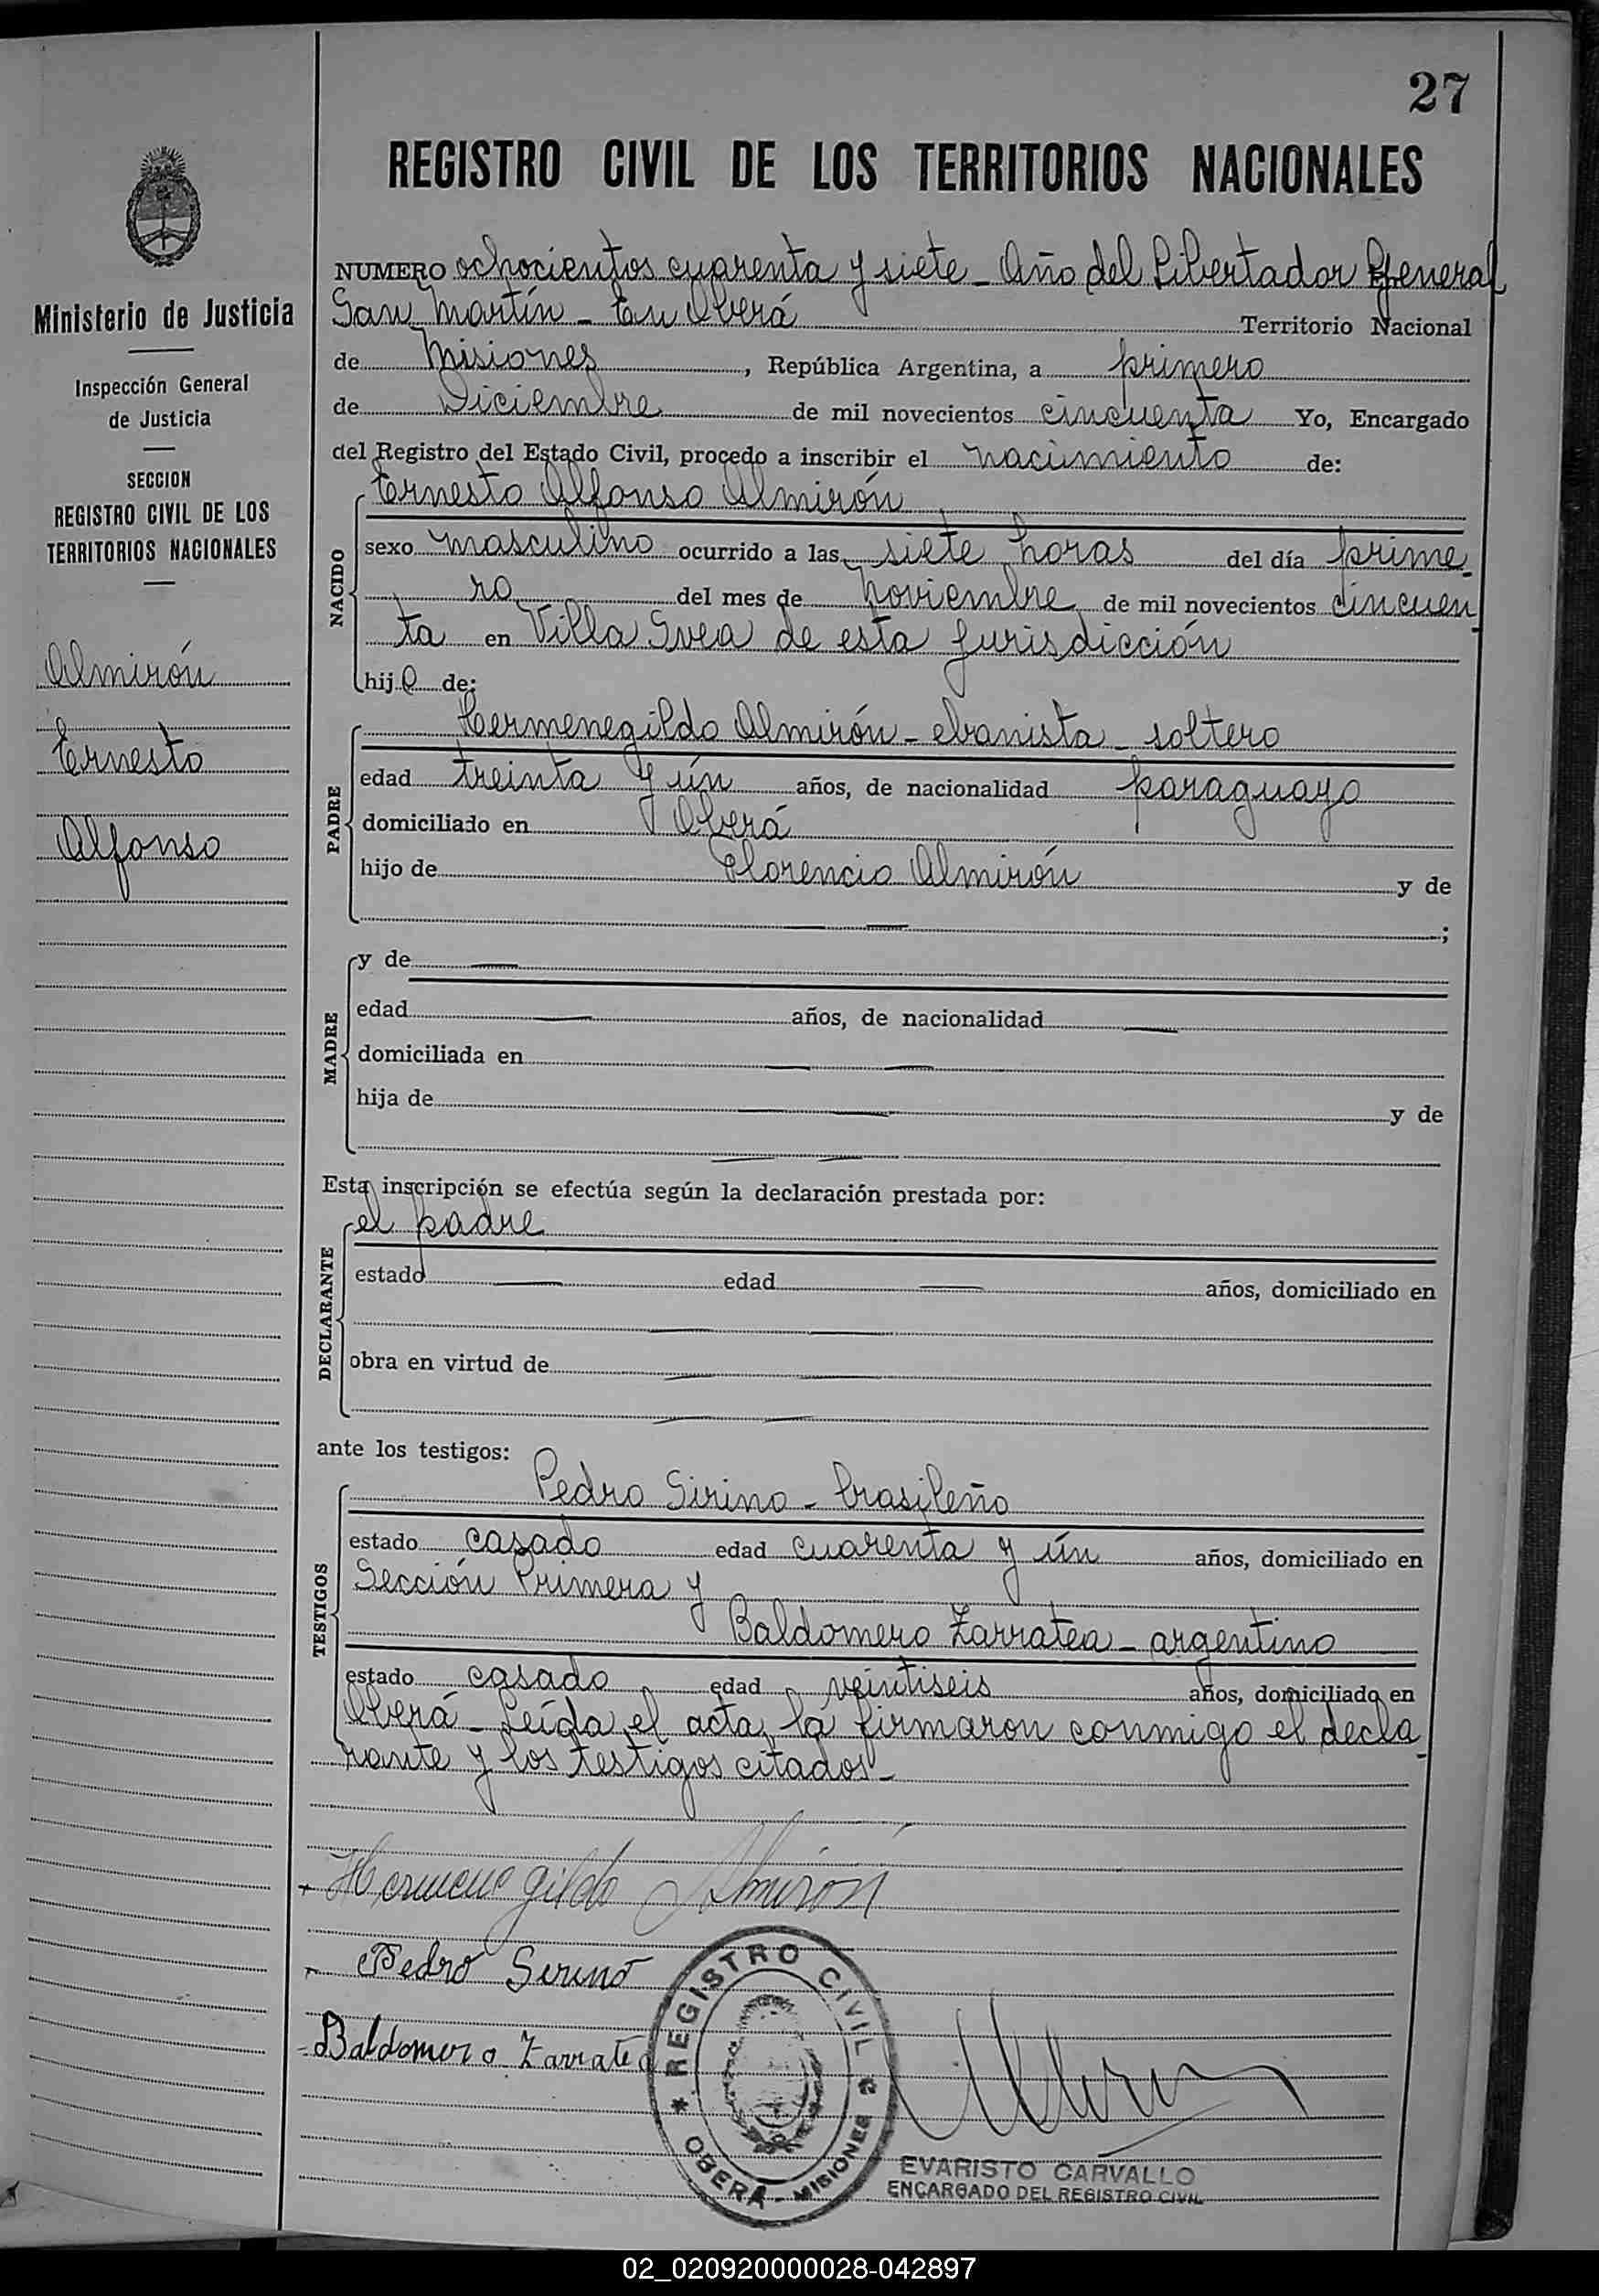 27
REGISTRO CIVIL DE LOS TERRITORIOS NACIONALES
Ministerio de Justicia
Inspección General
de Justicia
SECCION
REGISTRO CIVIL DE LOS
TERRITORIOS NACIONALES
Almirón
Ernesto
Alfonso
NUMERO ochocientos cuarenta y siete - Año del Libertador General
San Martín - En Oberá Territorio Nacional
de Misiones, República Argentina, a primero
de Diciembre de mil novecientos cincuenta Yo, Encargado
del Registro del Estado Civil, procedo a inscribir el nacimiento de:
Ernesto Alfonso Almirón
NACIDO
sexo masculino ocurrido a las siete horas del día prime-
ro del mes de noviembre de mil novecientos cincuen-
ta en Villa Svea de esta jurisdicción
hijo de:
Hermenegildo Almirón - ebanista - soltero
PADRE
edad treinta y ún años, de nacionalidad paraguayo
domiciliado en Oberá
hijo de Florencio Almirón y de
— — ;
MADRE
y de —
edad — años, de nacionalidad —
domiciliada en — —
hija de — — y de
— —
Esta inscripción se efectúa según la declaración prestada por:
el padre
DECLARANTE
estado — edad — años, domiciliado en
— —
obra en virtud de — —
— —
ante los testigos:
Pedro Sirino - brasileño
TESTIGOS
estado casado edad cuarenta y ún años, domiciliado en
Sección Primera y
Baldomero Zarratea - argentino
estado casado edad veintiseis años, domiciliado en
Oberá - Leída el acta, la firmaron conmigo el decla-
rante y los testigos citados -
Hermenegildo Almirón
Pedro Sirino
Baldomero Zarratea
REGISTRO CIVIL
OBERÁ - MISIONES
EVARISTO CARVALLO
ENCARGADO DEL REGISTRO CIVIL
02_020920000028-042897